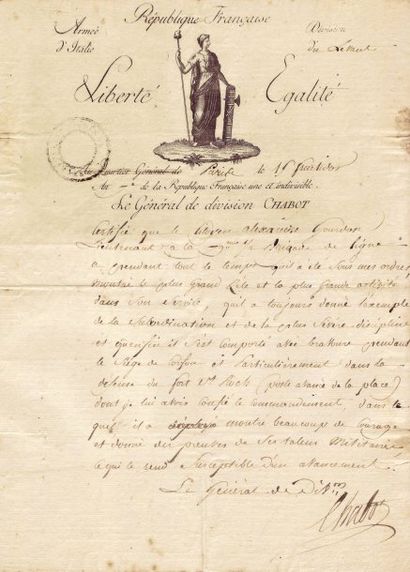 République Française
Armée Division
d'Italie du Levant
Liberté Egalité
du Quartier Général de Paris le 16
An de la République Française une et indivisible.
Le Général de division CHABOT
Certifie que le citoyen alexandre
Lieutenant a la Brigade de ligne
a pendant tout le temps qu'il a ete sous mes ordres
montré le plus grand Zele et la plus grande activité
dans son service, qu'il a toujours donné l'exemple
de la Subordination et de la plus Severe discipline
et qu'enfin il s'est comporté avec bravoure pendant
le Siege de Corfou et Particulierement dans la
defense du fort St Roch (poste avancé de la place)
dont je lui avois confié le Commandement, dans le
quel il a montré beaucoup de Courage
et donné des preuves de Ses talens Militaires
ce qui le rend Susceptible d'un avancement.
Le Général de Don
Chabot